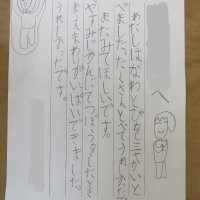 へ
わたしはなわとびを三かいと
べました。たくさんとべてうれしかったです。
またみてほしいです。
やすみじかんにてつぼうをしたとき
まえまわりがいっぱいできました。
うれしかったです。